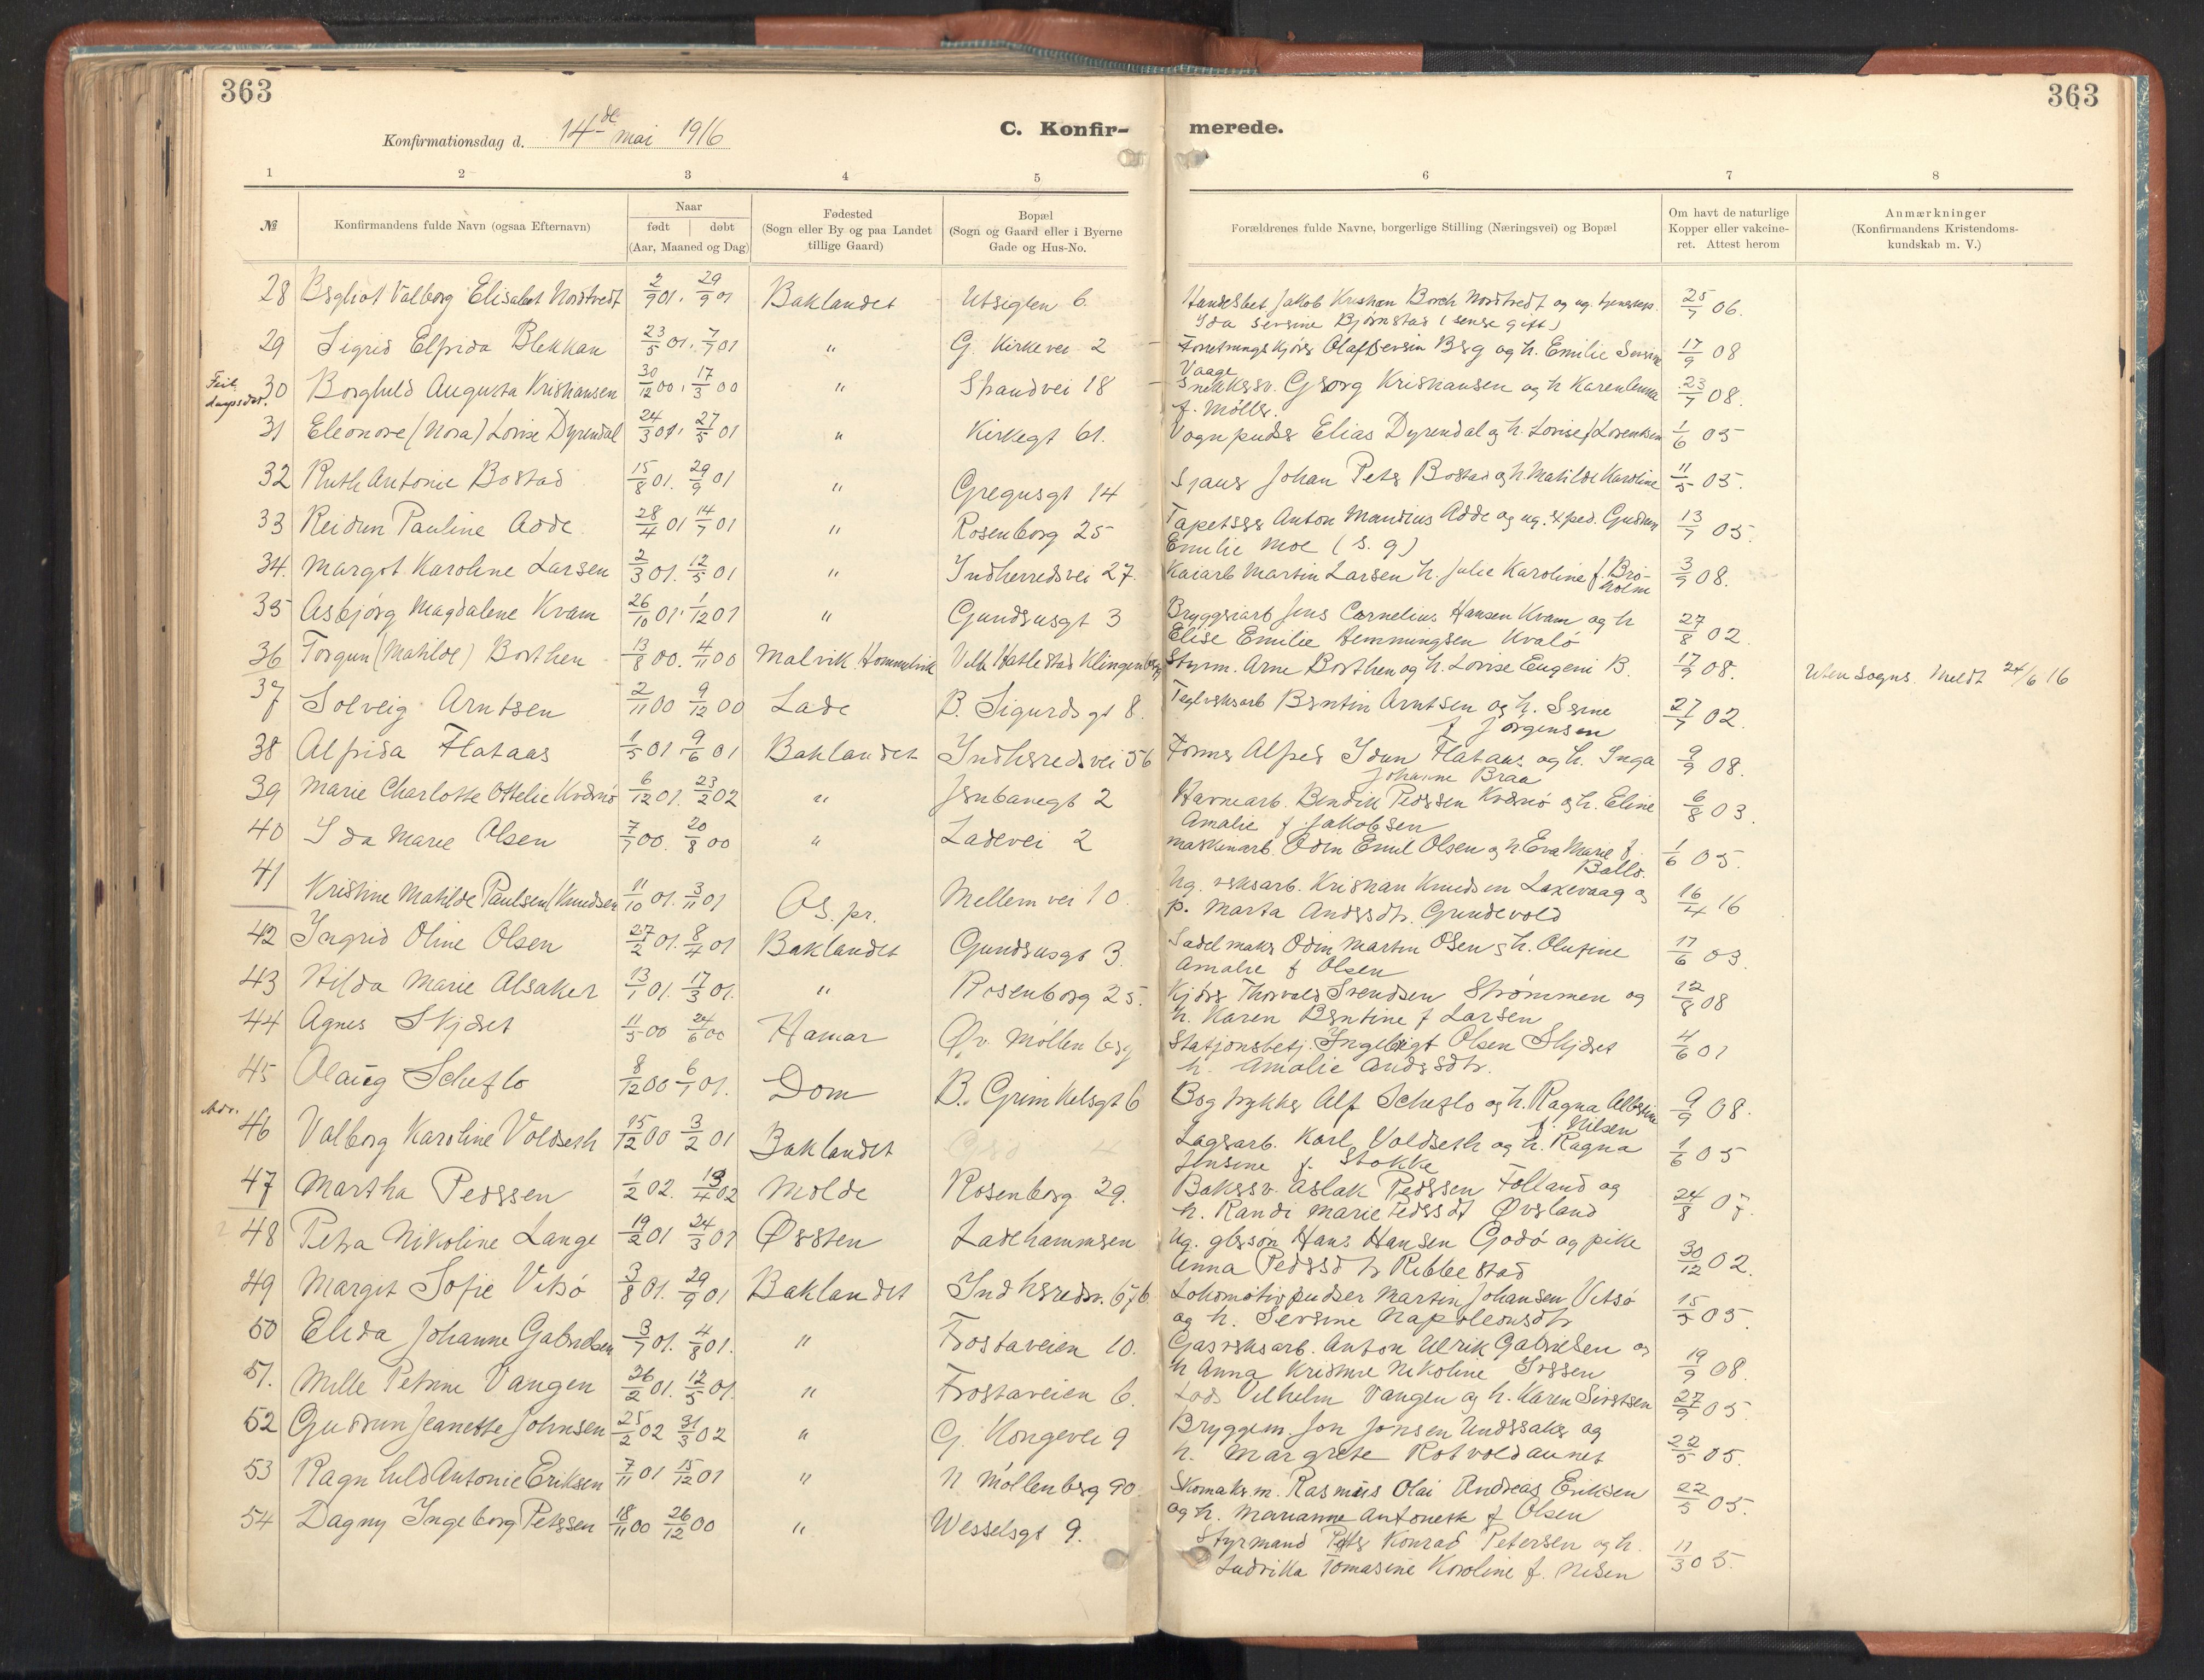 363
363
Konfirmationsdag d. 14de mai 1916
C. Konfir-
merede.
1 2 3 4 5 6 7 8
№ Konfirmandens fulde Navn (ogsaa Efternavn)
Naar
født døbt
(Aar, Maaned og Dag)
Fødested
(Sogn eller By og paa Landet
tillige Gaard)
Bopæl
(Sogn og Gaard eller i Byerne
Gade og Hus-No.
Forældrenes fulde Navne, borgerlige Stilling (Næringsvei) og Bopæl
Om havt de naturlige
Kopper eller vakcine-
ret. Attest herom
Anmærkninger
(Konfirmandens Kristendoms-
kundskab m. V.)
28 Bergliot Valborg Elisabet Nordtvedt 2/9 01. 29/9 01 Baklandet Utsigten 6. Handelsbet. Jakob Kristian Borch Nordtvedt og ug. 25/7 06.
Ida Severine Bjørnstad (senere gift)
29 Sigrid Elfrida Blekkan 23/5 01. 7/7 01 " G. Kirkevei 2 Forretningskjører Olaf Severin Berg og h. Emilie Severine 17/9 08
Vaage
Feil
daapsdat. 30 Borghild Augusta Kristiansen 30/12 00. 17/3 00 " Strandvei 18 Snekkersv. Georg Kristiansen og h Karen 23/7 08.
f. Møller.
31 Eleonore (Nora) Lovise Dyrendal 24/3 01. 27/5 01 " Kirkegt 61. Vognpudser Elias Dyrendal og h. Lovise f Lorentsen 1/6 05
32 Ruth Antonie Bostad 15/8 01. 29/9 01 " Gregusgt 14 Sjauer Johan Peter Bostad og h. Matilde Karoline 11/5 05.
33 Reidun Pauline Adde 28/4 01 14/7 01 " Rosenborg 25 Tapetserer Anton Mandius Adde og ug. exped. Gudrun 13/7 05.
Emilie Moe (s. g)
34. Margot Karoline Larsen 2/3 01. 12/5 01 " Indherredsvei 27. Kaiarb Martin Larsen h. Julie Karoline f. Bro- 3/9 08.
holm
35 Asbjørg Magdalene Kvam 26/10 01. 1/12 01 " Gundersusgt 3 Bryggeriarb Jens Cornelius Hansen Kvam og h 27/8 02.
Elise Emilie Hemmingsen Kvalø
36 Torgun (Matilde) Borthen 13/8 00. 4/11 00 Malvik Hommelvik Klingenberg Styrm. Arne Borthen og h. Lovise Eugeni B. 17/9 08. Uten sogns. Meldt 24/6 16
37 Solveig Arntsen 2/11 00 9/12 00 Lade B. Sigurdsgt 8. Teglverksarb Berntin Arntsen og h. Serine 27/7 02.
f Jørgensen
38 Alfrida Flataas 1/5 01 9/6 01 Baklandet Indherredsvei 56 Former Alfred Idun Flataas og h. Inga 9/9 08.
Johanne Braa
39 Marie Charlotte Ottelie Kvernø 6/12 01. 23/2 02 " Jernbanegt 2 Havnearb. Bendik Pedersen Kvernø og h. Eline 6/8 03.
Amalie f Jakobsen
40 Ida Marie Olsen 7/7 00. 20/8 00 " Ladevei 2 Maskinarb. Odin Emil Olsen og h. Eva Marie f. 1/6 05.
Balls.
41 Kristine Matilde Paulsen (Knudsen 11/10 01. 3/11 01 Os. pr. Mellemvei 10. Ug. verksarb. Kristian Knudsen Laxevaag og 16/4 16
p. Marta Andersdtr. Grundevold
42 Ingrid Oline Olsen 27/2 01. 8/4 01 Baklandet Gundersusgt 3. Sadelmaker Odin Martin Olsen og h. Olufine 17/6 03.
Amalie f Olsen
43 Hilda Marie Alsaker 13/1 01. 17/3 01. " Rosenborg 25. Kjører Thorvald Svendsen Strømmen og 12/8 08
h. Karen Berntine f Larsen
44 Agnes Skjeret 11/5 00 24/6 00 Hamar Øv. Møllenberg Stasjonsbetj. Ingebrigt Olsen Skjeret 4/6 01
h. Amalie Andersdtr.
45 Olaug Scheflo 8/12 00 6/1 01. Dom B. Grimkelsgt 6 Bogtrykker Alf Scheflo og h. Ragna Albertine 9/9 08.
f. Nilsen
46 Valborg Karoline Voldseth 15/12 00 3/2 01 Baklandet Lagerarb. Karl Voldseth og h. Ragna 1/6 05
Jensine f. Stokke
47 Martha Pedersen 1/2 02. 13/4 02 Molde Rosenborg 39. Bakersv. Aslak Pedersen Folland og 24/8 07.
h. Randi Marie Pedersdt Øverland
48 Petra Nikoline Lange 19/2 01 24/3 01 Ørsten Ladehammeren Ug. Hans Hansen Godø og pike 30/12 02.
Anna Pedersdtr Ribbestad
49 Margit Sofie Vitsø 3/8 01. 29/9 01 Baklandet Indherredsv. 67b. Lokomotivpudser Martin Johansen Vitsø 15/5 05.
og h. Severine Napoleonsdtr
50 Elida Johanne Gabrielsen 3/7 01. 4/8 01. " Frostaveien 10. Gasverksarb. Anton Ulrik Gabrielsen og 19/9 08.
h Anna Kristine Nikoline Iversen
51. Mille Petrine Vangen 26/2 01. 12/5 01. " Frostaveien 6. Lods Vilhelm Vangen og h. Karen Sivertsen 27/9 05.
52 Gudrun Jeanette Johnsen 25/2 02 31/3 02 " G. Kongevei 9 Bryggem. Jon Jonsen Undersaker og 22/5 05.
h. Margrete Rotvoldaunet
53 Ragnhild Antonie Eriksen 7/11 01 15/12 01 " N Møllenberg 90 Skomakerm. Rasmus Olai Andreas Eriksen 22/5 05.
og h. Marianne Antonette f Olsen
54 Dagny Ingeborg Petersen 18/11 00 26/12 00 " Wesselsgt 9. Styrmand Peter Konrad Petersen og h. 11/3 05.
Ludvika Tomasine Karoline f. Nilsen